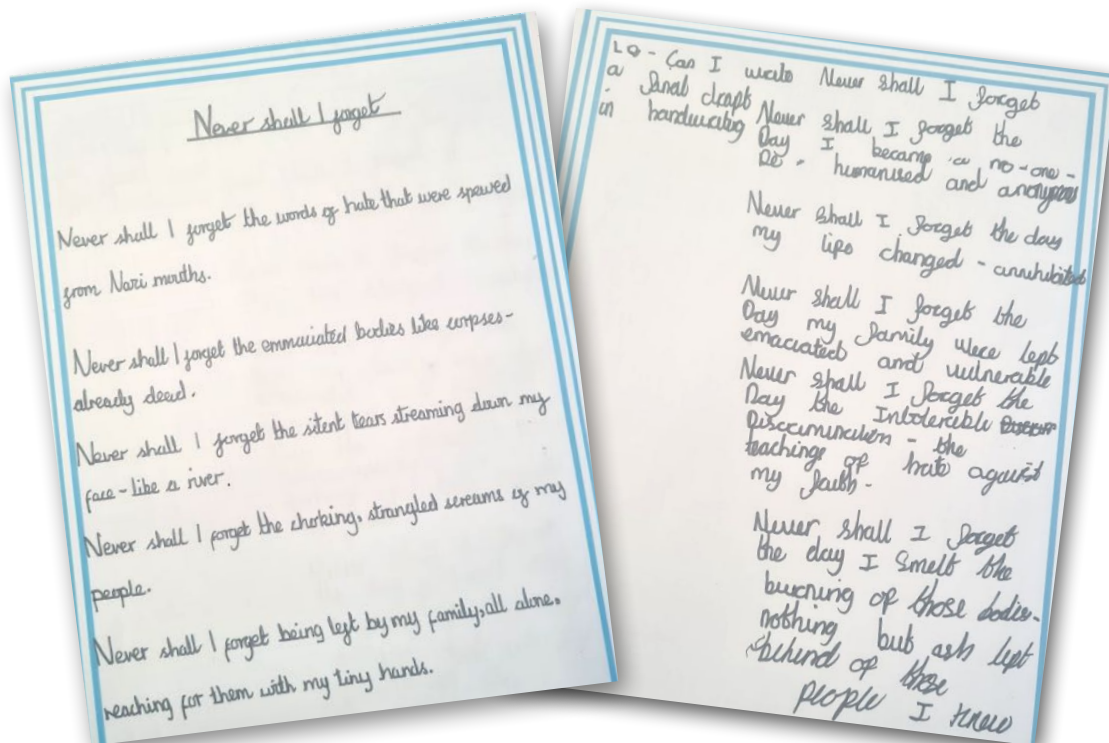 Never shall I forget
Never shall I forget the words of hate that were spewed
from Nazi mouths.
Never shall I forget the emmaciated bodies like corpses-
already dead.
Never shall I forget the silent tears streaming down my
face - like a river.
Never shall I forget the chorking, strangled screams of my
people.
Never shall I forget being left by my family, all alone.
reaching for them with my tiny hands.
LQ - Can I write Never shall I forget
a final draft Never shall I forget the
in handwriting Day I became a no-one-
De - humanised and anonymous
Never shall I forget the day
my life changed - annihilated
Never shall I forget the
Day my family were left
emaciated and vulnerable
Never shall I forget the
Day the Intolerible
Discrimination - the
teachings of hate against
my faith-
Never shall I forget
the day I Smelt the
burning of those bodies-
nothing but ash left
behind of those
people I knew